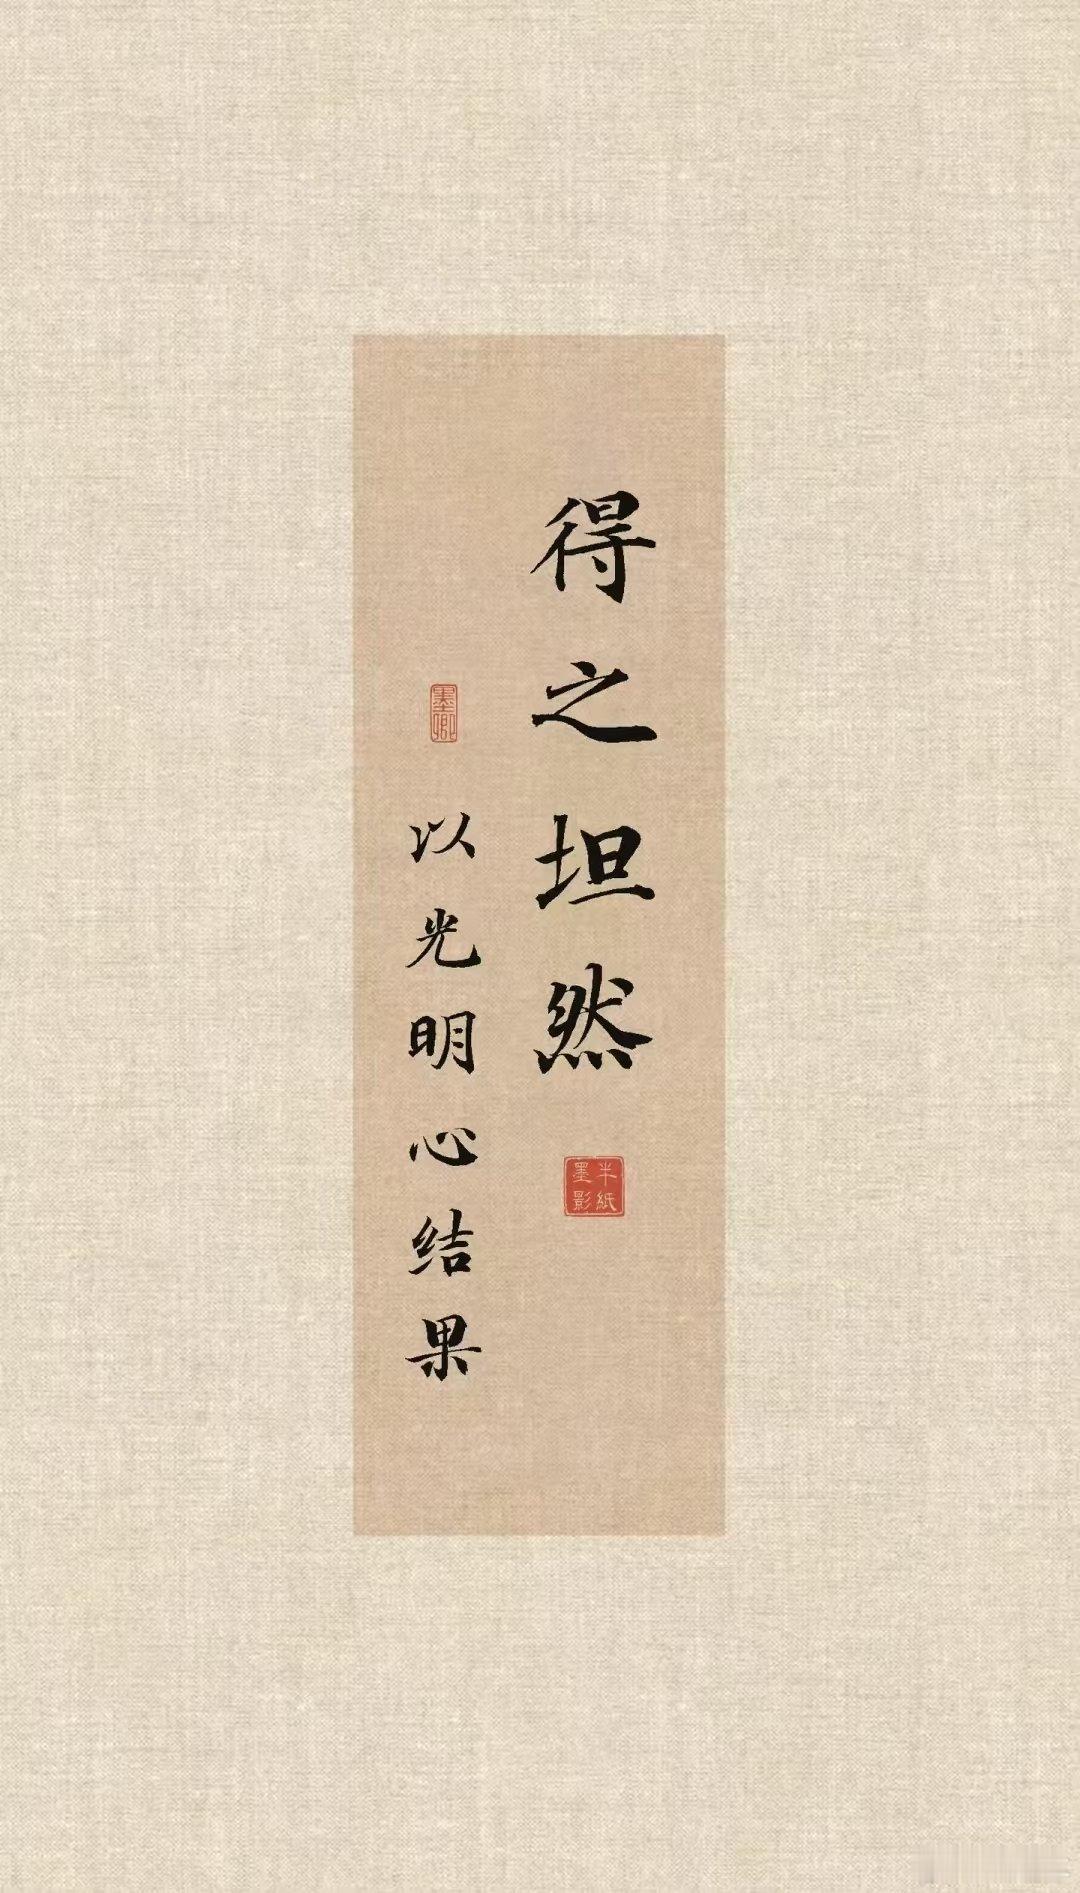 得之坦然
半紙
墨影
墨卿
以光明心结果